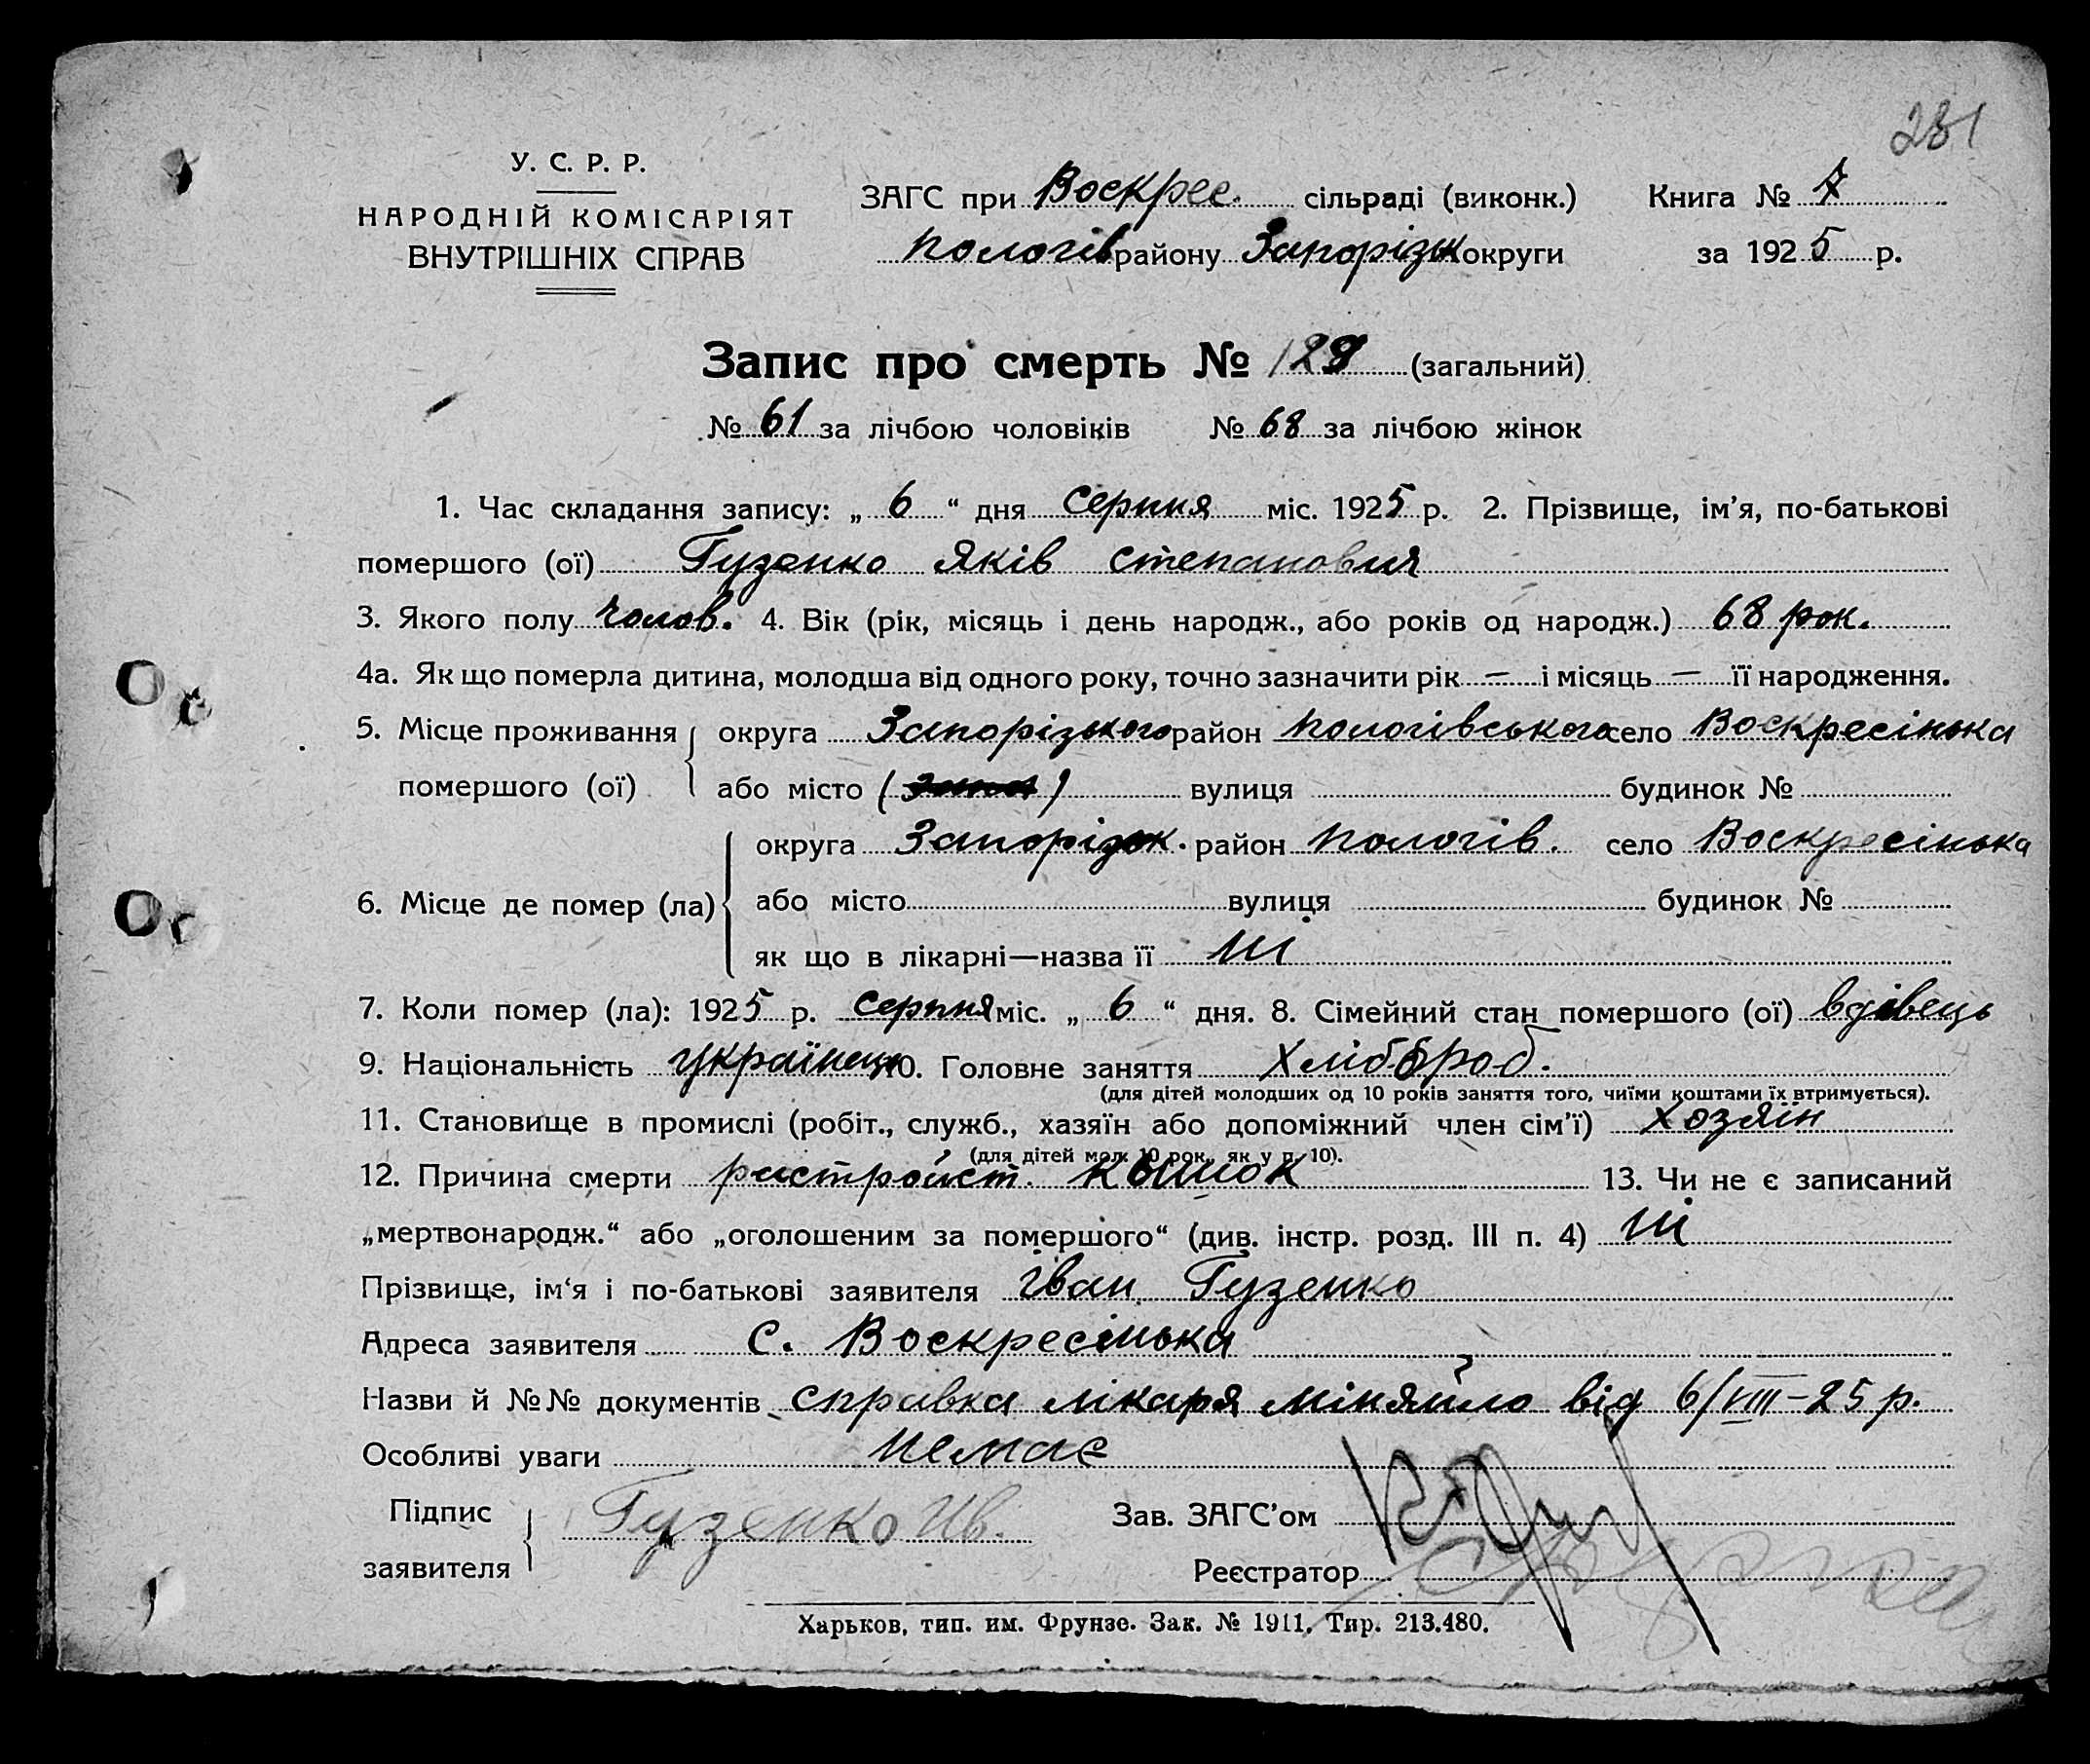 231
У. С. Р. Р.
НАРОДНІЙ КОМІСАРІЯТ
ВНУТРІШНІХ СПРАВ
ЗАГС при Воскрес. сільраді (виконк.) Книга № 7
пологів району Запорізьк округи за 1925 р.
Запис про смерть № 129 (загальний)
№ 61 за лічбою чоловіків № 68 за лічбою жінок
1. Час складання запису: „ 6 “ дня Серпня міс. 1925 р. 2. Прізвище, ім’я, по-батькові
помершого (ої) Гузенко Яків Степанович
3. Якого полу чолов. 4. Вік (рік, місяць і день народж., або років од народж.) 68 рок.
4а. Як що померла дитина, молодша від одного року, точно зазначити рік — і місяць — її народження.
5. Місце проживання округа Запорізького район пологівського село Воскресінька
помершого (ої) або місто вулиця будинок №
округа Запорізьк. район пологів. село Воскресінька
6. Місце де помер (ла) або місто вулиця будинок №
як що в лікарні—назва її ні
7. Коли помер (ла): 1925 р. Серпня міс. „ 6 “ дня. 8. Сімейний стан помершого (ої) вдівець
9. Національність українець 10. Головне заняття Хлібороб.
(для дітей молодших од 10 років заняття того, чиїми коштами їх втримується).
11. Становище в промислі (робіт., служб., хазяїн або допоміжний член сім’ї) хозяїн
(для дітей мол. 10 рок., як у п. 10).
12. Причина смерти растройст. кышок 13. Чи не є записаний
„мертвонародж.“ або „оголошеним за помершого“ (див. інстр. розд. III п. 4) ні
Прізвище, ім‘я і по-батькові заявителя іван Гузенко
Адреса заявителя с. Воскресінька
Назви й №№ документів справка лікаря міняйло від 6/VIII–25 р.
Особливі уваги немає
Підпис Гузенко Ив. Зав. ЗАГС’ом
заявителя Реєстратор
Харьков, тип. им. Фрунзе. Зак. № 1911. Тир. 213.480.